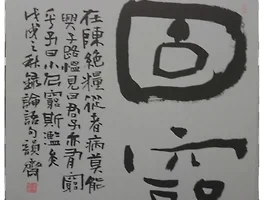 固窮
在陳絕糧從者病莫能
興子路慍見曰君子亦有窮
乎子曰小人窮斯濫矣
戊戌之秋錄論語句韻齋